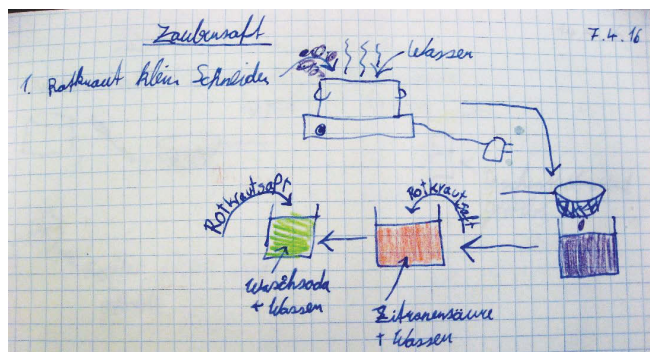 Zaubersaft
7.4.16
Wasser
1. Rotkraut klein Schneiden
Rotkrautsaft
Rotkrautsaft
Waschsoda
+ Wasser
Zitronensäure
+ Wasser